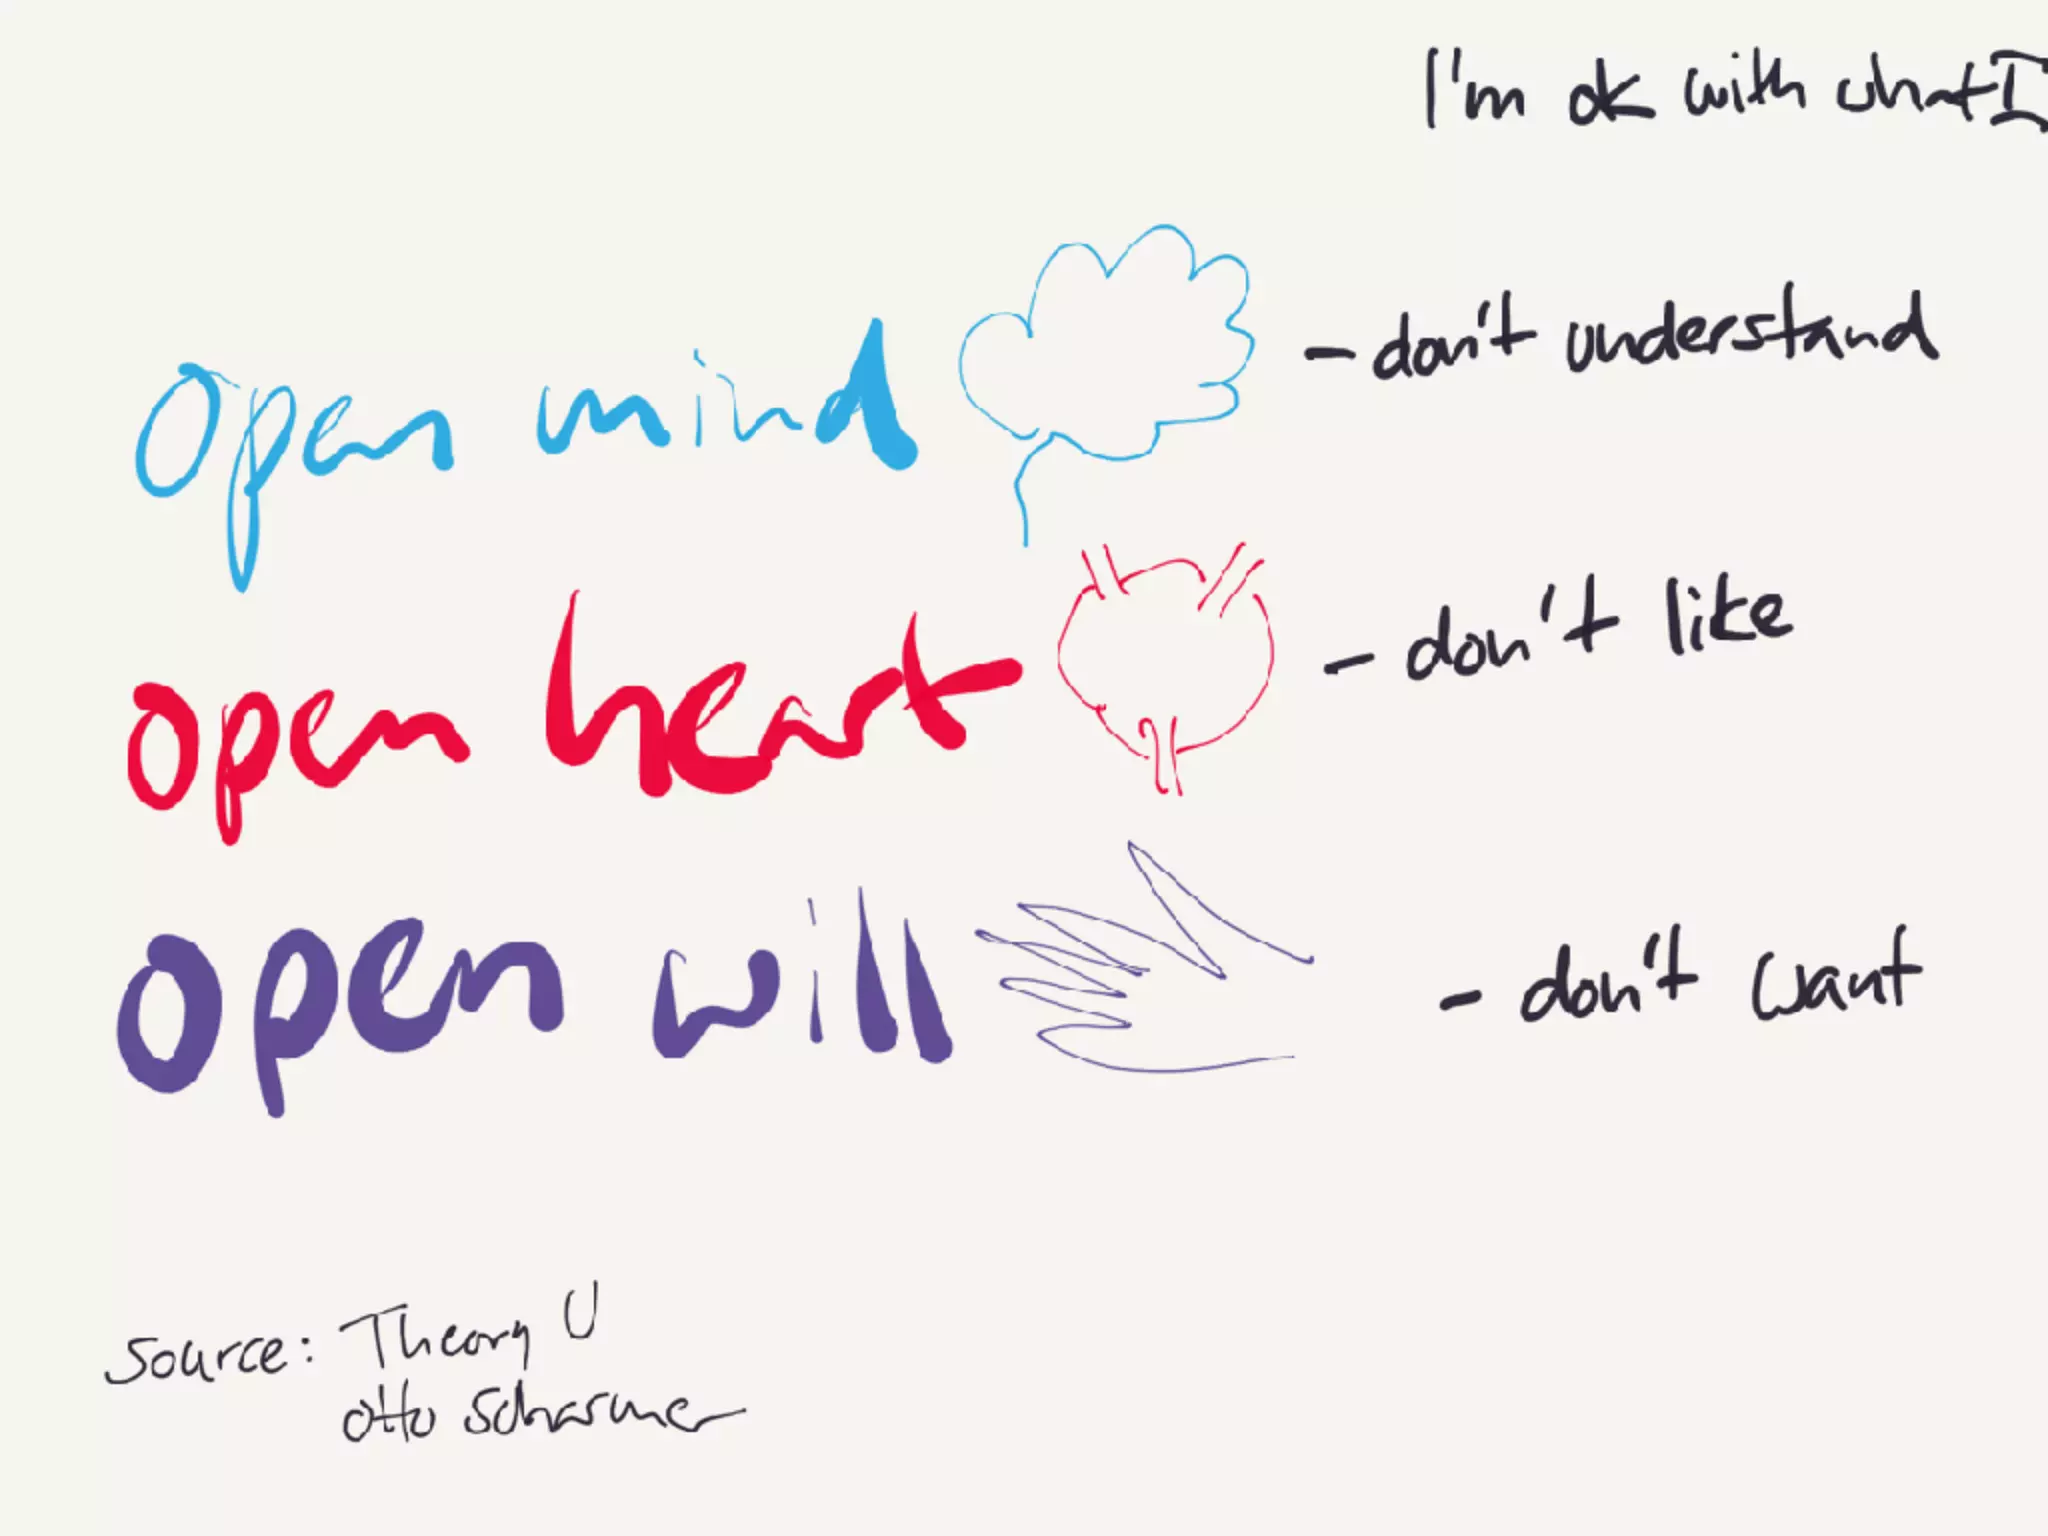 I'm ok with what I
open mind - don't understand
open heart - don't like
open will - don't want
Source: Theory U
Otto Scharmer